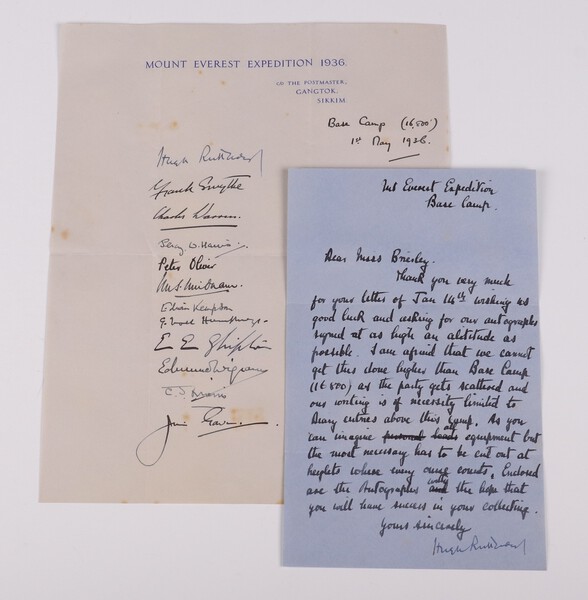 MOUNT EVEREST EXPEDITION 1936.
C/O THE POSTMASTER,
GANGTOK,
SIKKIM.
Base Camp (16,500')
1st May 1936.
Hugh Ruttledge
Frank Smythe
Charles Warren.
Percy W. Harris.
Peter Oliver
Edwin Kempson
G. Noel Humphreys.
E E Shipton
Edmund Wigram
C. J. Morris
Mt Everest Expedition
Base Camp.
Dear Miss Brierley.
Thank you very much
for your letter of Jan 14th wishing us
good luck and asking for our autographs
signed at as high an altitude as
possible. I am afraid that we cannot
get this done higher than Base Camp
(16500) as the party gets scattered and
our writing is of necessity limited to
Diary entries above this Camp. As you
can imagine personal loads all equipment but
the most necessary has to be cut out at
heights where every ounce counts. Enclosed
are the Autographs and with the hope that
you will have success in your collecting.
Yours sincerely
Hugh Ruttledge